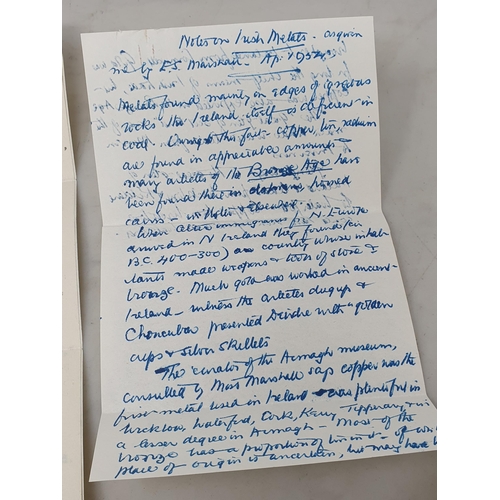 Notes on Irish Metals - as given
me by E.S. Marshall - Ap. 1952
Metals found mainly on edges of igneous
rocks tho Ireland itself is deficient in
coal - this fact - copper, tin, radium
are found in appreciable amounts -
many articles of the Bronze Age have
been found there in
cairns
When immigrants fr. N. Europe
arrived in N Ireland they found (in
B.C. 400-300) a country whose inhabi-
tants made weapons & tools of stone &
bronze. Much gold was worked in ancient
Ireland - witness the articles dug up &
Choncubar presented Deirdre with "golden
cups & silver skillets
The curator of the Armagh museum,
consulted by Miss Marshall says copper was the
first metal used in Ireland - was plentiful in
Wicklow, Waterford, Cork, Kerry, Tipperary & in
a lesser degree in Armagh - Most of the
bronze has a proportion of tin in it - of wh.
place of origin is uncertain, but may have b